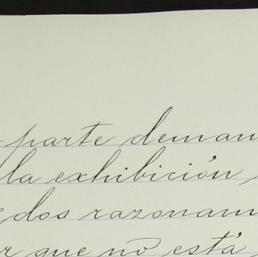 parte deman
la exhibición
dos razonam
r que no está